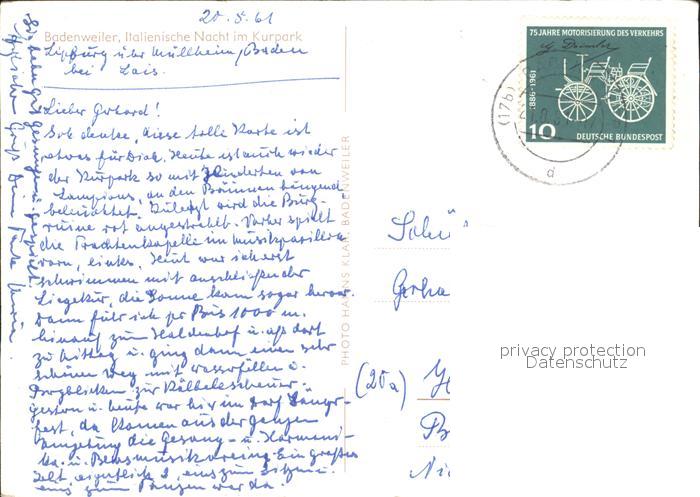 20.8.61
Badenweiler, Italienische Nacht im Kurpark
Lipburg über Müllheim, Baden
bei Lais.
Lieber Gerhard!
Ich denke, diese tolle Karte ist
etwas für Dich. Heute ist auch wieder
der Kurpark so mit Hunderten von
Lampions, an den Bäumen hängend
beleuchtet. Zuletzt wird die Burg-
ruine rot angestrahlt. Vorher spielt
die Trachtenkapelle im Musikpavillon
vorn, links. Heut war ich erst
schwimmen mit anschließender
Liegekur, die Sonne kam sogar hervor.
Dann fuhr ich per Bus 1000 m.
hinauf zum Haldenhof u. aß dort
zu Mittag u. ging dann einen sehr
schönen Weg mit Wasserfällen u.
Bergblicken zur Kälbelescheuer.
gestern u. heute war hier im Dorf Sänger-
fest, da kamen aus der ganzen
Umgebung die Gesang- u. Harmoni-
ka- u. Blasmusikvereine. Ein großes
Zelt, eigentlich 2, eins zum Sitzen u.
eins zum Tanzen war da.
Gruß Deine Tante
PHOTO HANNS KLAR, BADENWEILER
75 JAHRE MOTORISIERUNG DES VERKEHRS
G. Daimler
1886-1961
10
DEUTSCHE BUNDESPOST
(17b)
d
Schü
Gerha
(20a) H
privacy protection
Datenschutz
Ni